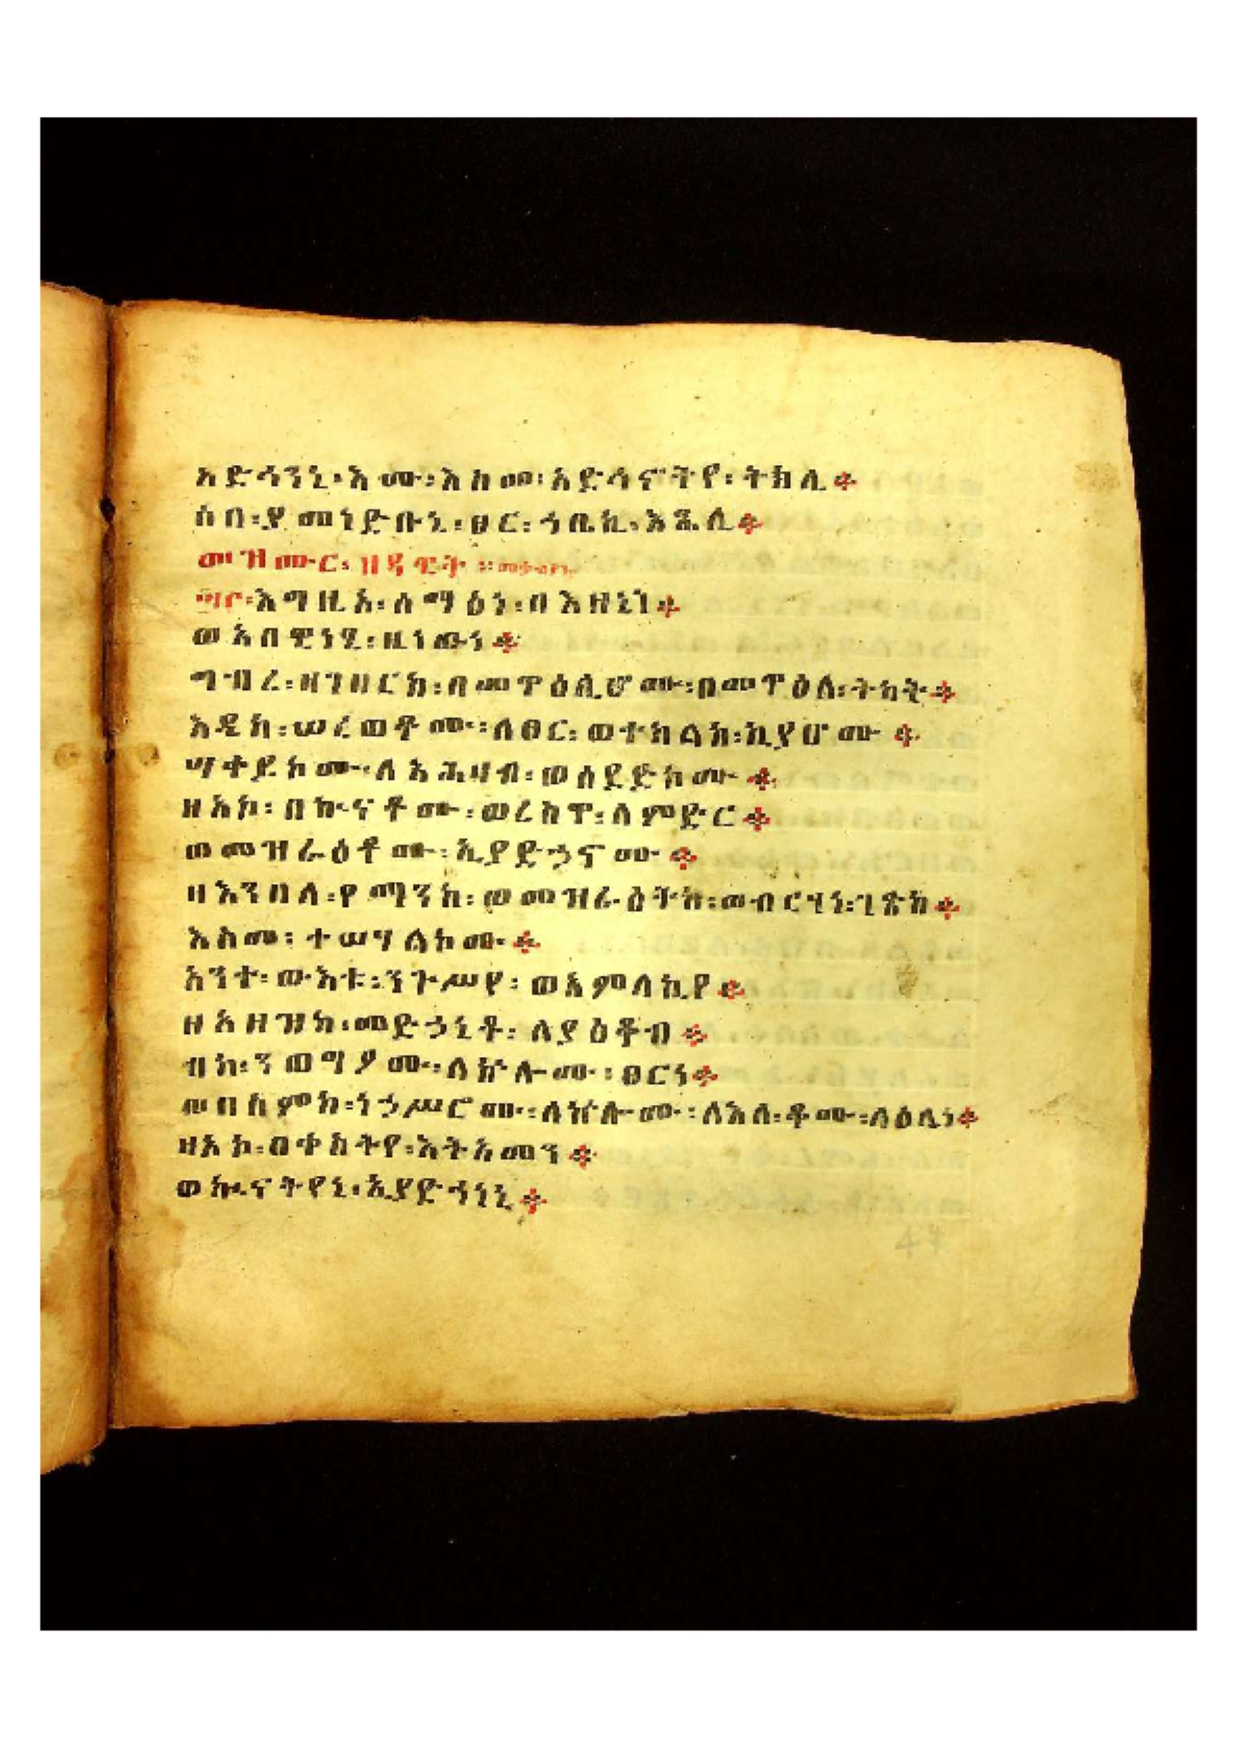 አድኅንኒ፡እሙ፡እስመ፡አድኅኖትየ፡ትክሊ፨
ሶበ፡ያመነድቡኒ፡ፀር፡ኀቤኪ፡እጼሊ፨
መዝሙር፡ዘዳዊት፡
፵፫፡እግዚእ፡ሰማዕነ፡በእዘኒነ፨
ወአበዊነሂ፡ዜነዉነ፨
ግብረ፡ዘገበርከ፡በመዋዕሊሆሙ፡በመዋዕለ፡ትካት፨
እዴከ፡ሠረወቶሙ፡ለፀር፡ወተከልከ፡ኪያሆሙ፨
ሣቀይኮሙ፡ለአሕዛብ፡ወሰደድኮሙ፨
ዘአኮ፡በኲናቶሙ፡ወረስዋ፡ለምድር፨
ወመዝራዕቶሙ፡ኢያድኃኖሙ፨
ዘእንበለ፡የማንከ፡ወመዝራዕትከ፡ወብርሃነ፡ገጽከ፨
እስመ፡ተሠሃልኮሙ፨
አንተ፡ውእቱ፡ንጉሥየ፡ወአምላኪየ፨
ዘአዘዝከ፡መድኃኒቶ፡ለያዕቆብ፨
ብከ፡ንወግዖሙ፡ለኵሎሙ፡ፀርነ፨
ወበስምከ፡ነኃሥሮሙ፡ለኵሎሙ፡ለእለ፡ቆሙ፡ላዕሌነ፨
ዘአኮ፡በቀስትየ፡እትአመን፨
ወኲናትየኒ፡ኢያድኅነኒ፨
47